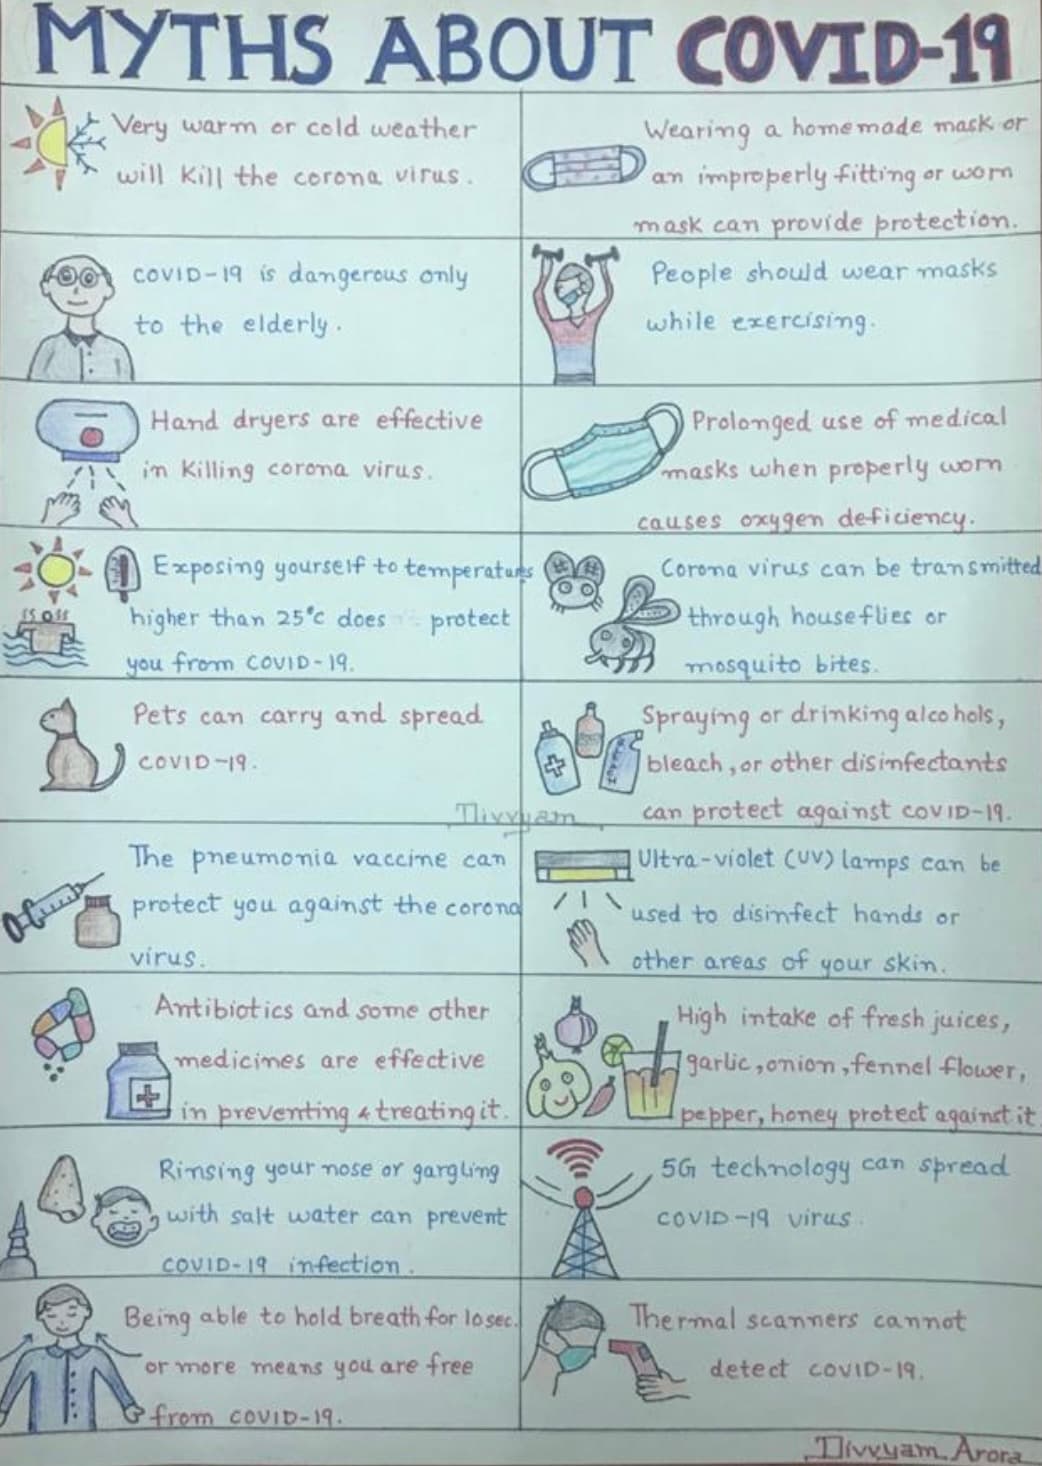 MYTHS ABOUT COVID-19
Very warm or cold weather
will kill the corona virus.
Wearing a homemade mask or
an improperly fitting or worn
mask can provide protection.
COVID-19 is dangerous only
to the elderly.
People should wear masks
while exercising.
Hand dryers are effective
in killing corona virus.
Prolonged use of medical
masks when properly worn
causes oxygen deficiency.
Exposing yourself to temperatures
higher than 25°C does protect
you from COVID-19.
Corona virus can be transmitted
through houseflies or
mosquito bites.
Pets can carry and spread
COVID-19.
Spraying or drinking alcohols,
bleach, or other disinfectants
can protect against COVID-19.
The pneumonia vaccine can
protect you against the corona
virus.
Ultra-violet (UV) lamps can be
used to disinfect hands or
other areas of your skin.
Antibiotics and some other
medicines are effective
in preventing & treating it.
High intake of fresh juices,
garlic, onion, fennel flower,
pepper, honey protect against it
Rinsing your nose or gargling
with salt water can prevent
COVID-19 infection.
5G technology can spread
COVID-19 virus.
Being able to hold breath for 10 sec.
or more means you are free
from COVID-19.
Thermal scanners cannot
detect COVID-19.
Divvyam
Divvyam Arora